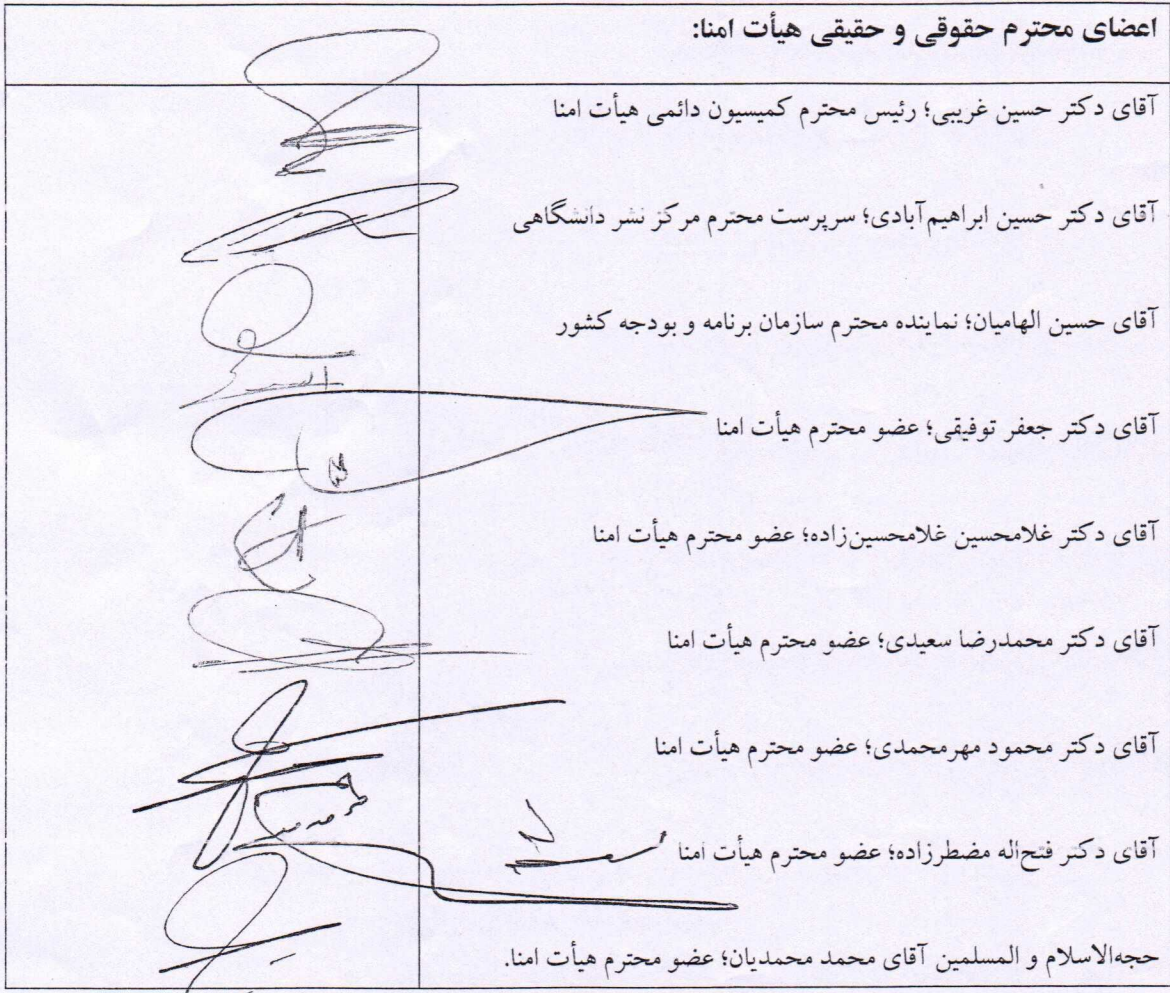 اعضای محترم حقوقی و حقیقی هیأت امنا:
آقای دکتر حسین غریبی؛ رئیس محترم کمیسیون دائمی هیأت امنا
آقای دکتر حسین ابراهیم‌آبادی؛ سرپرست محترم مرکز نشر دانشگاهی
آقای حسین الهامیان؛ نماینده محترم سازمان برنامه و بودجه کشور
آقای دکتر جعفر توفیقی؛ عضو محترم هیأت امنا
آقای دکتر غلامحسین غلامحسین‌زاده؛ عضو محترم هیأت امنا
آقای دکتر محمدرضا سعیدی؛ عضو محترم هیأت امنا
آقای دکتر محمود مهرمحمدی؛ عضو محترم هیأت امنا
آقای دکتر فتح‌اله مضطرزاده؛ عضو محترم هیأت امنا
حجه‌الاسلام و المسلمین آقای محمد محمدیان؛ عضو محترم هیأت امنا.